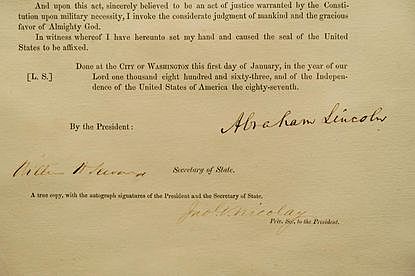 And upon this act, sincerely believed to be an act of justice warranted by the Consti-
tution upon military necessity, I invoke the considerate judgment of mankind and the gracious
favor of Almighty God.
In witness whereof I have hereunto set my hand and caused the seal of the United
States to be affixed.
Done at the CITY OF WASHINGTON this first day of January, in the year of our
[L. S.] Lord one thousand eight hundred and sixty-three, and of the Independ-
ence of the United States of America the eighty-seventh.
By the President: Abraham Lincoln
William H Seward Secretary of State.
A true copy, with the autograph signatures of the President and the Secretary of State.
Jno. G. Nicolay
Priv. Sec. to the President.